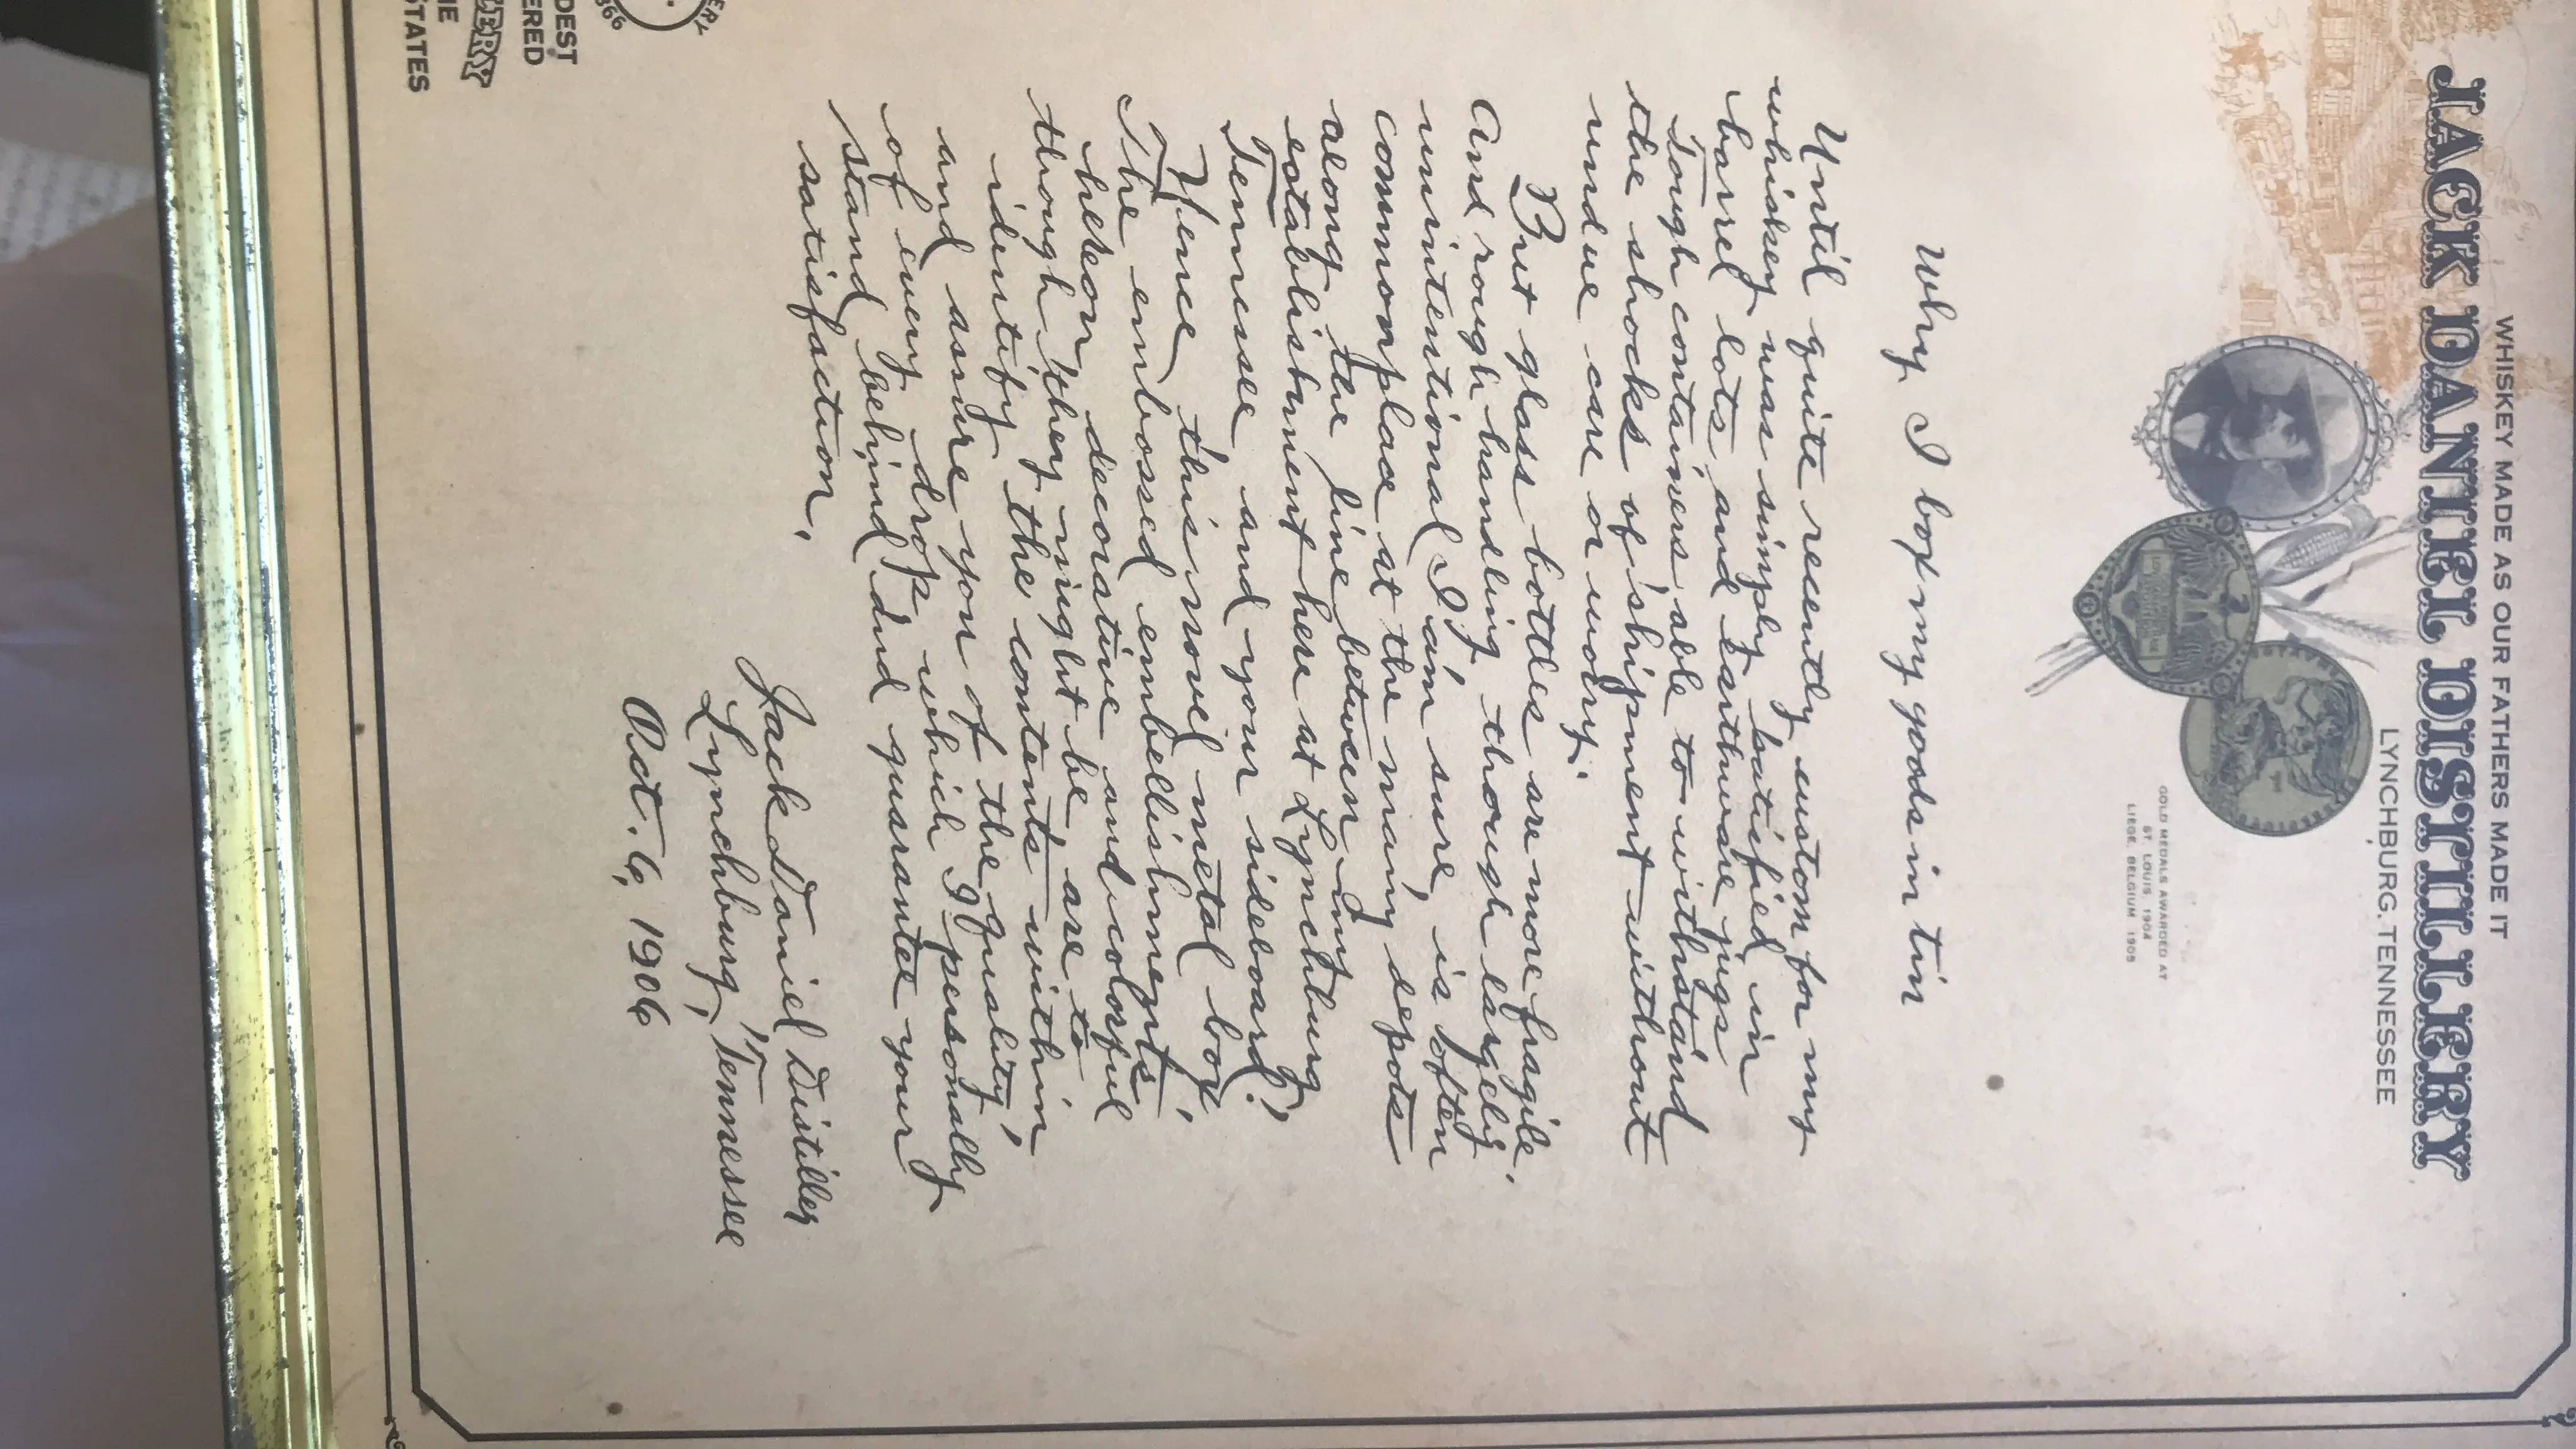 WHISKEY MADE AS OUR FATHERS MADE IT
JACK DANIEL DISTILLERY
LYNCHBURG, TENNESSEE
GOLD MEDALS AWARDED AT
ST. LOUIS, 1904
LIEGE, BELGIUM 1905
Why I box my goods in tin
Until quite recently custom for my
whiskey was simply batisfied in
barrel lots, and earthware jugs
Tough containers able to withstand
the shocks of shipment without
undue care or worry.
But glass bottles are more fragile.
And rough handling, though largely
unintentional I am sure, is often
commonplace at the many depots
along the line between my
establishment here at Lynchburg,
Tennessee and your sideboard.
Hence this novel metal box.
The embossed embellishments
hereon, decorative and colorful
though they might be, are to
identify the contents within,
and assure you of the quality
of every drop which I personally
stand behind and guarantee your
satisfaction.
Jack Daniel, Distiller
Lynchburg, Tennessee
Oct. 6, 1906
DEST
ERED
LERY
HE
STATES
ERY
866